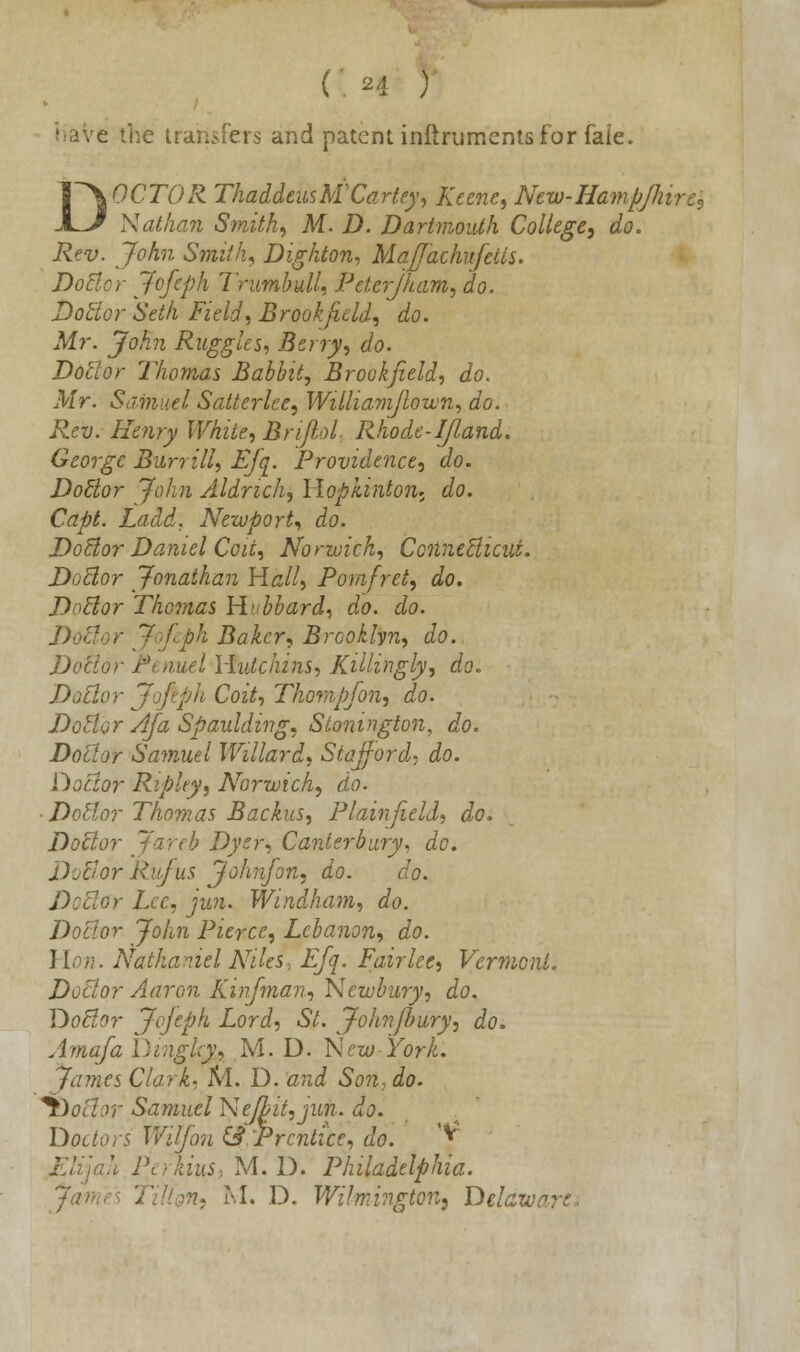 ( 24 )
have the transfers and patent inſtruments for ſale.
DOCTOR Thaddeus M'Cartey, Keene, New-Hampſhire,
Nathan Smith, M. D. Dartmouth College, do.
Rev. John Smith, Dighton, Maſſachuſetts.
Doctor Joſeph Trumbull, Peterſham, do.
Doctor Seth Field, Brookfield, do.
Mr. John Ruggles, Berry, do.
Doctor Thomas Babbit, Brookfield, do.
Mr. Samuel Satterlee, Williamſtown, do.
Rev. Henry White, Briſtol, Rhode-Iſland.
George Burrill, Eſq. Providence, do.
Doctor John Aldrich, Hopkinton, do.
Capt. Ladd, Newport, do.
Doctor Daniel Coit, Norwich, Connecticut.
Doctor Jonathan Hall, Pomfret, do.
Doctor Thomas Hubbard, do. do.
Doctor Joſeph Baker, Brooklyn, do.
Doctor Penuel Hutchins, Killingly, do.
Doctor Joſeph Coit, Thompſon, do.
Doctor Aſa Spaulding, Stonington, do.
Doctor Samuel Willard, Stafford, do.
Doctor Ripley, Norwich, do.
Doctor Thomas Backus, Plainfield, do.
Doctor Jareb Dyer, Canterbury, do.
Doctor Rufus Johnſon, do. do.
Doctor Lee, jun. Windham, do.
Doctor John Pierce, Lebanon, do.
Hon. Nathaniel Niles, Eſq. Fairlee, Vermont.
Doctor Aaron Kinſman, Newbury, do.
Doctor Joſeph Lord, St. Johnſbury, do.
Amaſa Dingley, M. D. New-York.
James Clark, M. D. and Son, do.
Doctor Samuel Neſbit, jun. do.
Doctors Wilſon & Prentice, do.
Elijah Perkius, M. D. Philadelphia.
James Tilton, M. D. Wilmington, Delaware.